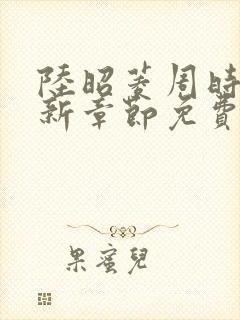 陸昭菱周時
新章節免費
果蜜兒